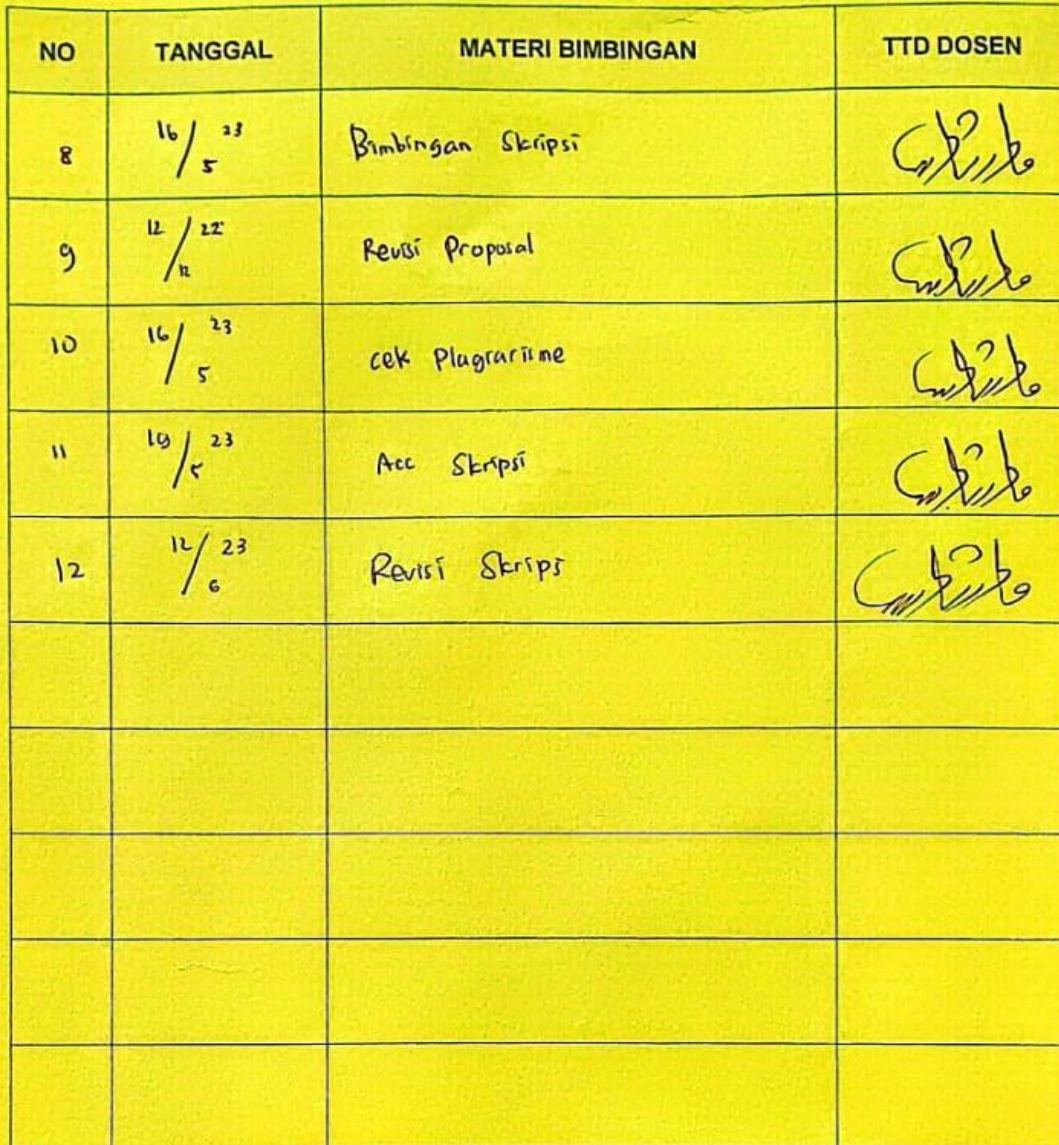 NO TANGGAL MATERI BIMBINGAN TTD DOSEN
8 16/5 23 Bimbingan Skripsi
9 12/12 22 Revisi Proposal
10 16/5 23 cek Plagrarisme
11 19/5 23 Acc Skripsi
12 12/6 23 Revisi Skripsi